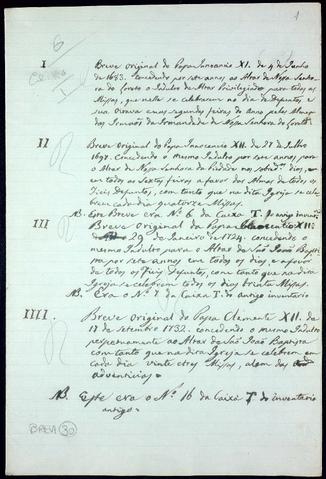 1
6
Caixa
I
I Breve original do Papa Innocencio XI. de 4 de Junho
de 1683. concedendo por sete annos ao Altar de Nossa Senho-
ra do Loreto o Indulto de Altar Privilegiado para todas as
Missas, que nelle se celebrarem no dia de Defuntos, e
sua oitava e nas segundas feiras do anno pelas Almas
dos Irmaõs da Irmandade de Nossa Senhora do Loreto.
II Breve original do Papa Innocencio XII. de 27 de Julho
1697. Concedendo o mesmo Indulto por sete annos para
o Altar de Nossa Senhora da Piedade nos dias, e
em todas as Sextas feiras a favor das Almas de todos os
Fieis Defuntos, com tanto que na dita Igreja se cele-
brem cada dia quatorze Missas.
NB. Este Breve era N.º 6 da Caixa T. do antigo inventario
III Breve Original do Papa Innocencio XIII.
29 de Janeiro de 1724. concedendo o
mesmo Indulto para o Altar de Saõ Joaõ Baptis-
ta por sete annos em todos os dias, e a favor
de todos os Fieis Defuntos, com tanto que na di-
ta Igreja se celebrem todos os dias trinta Missas.
NB. Era o N.º 7 da Caixa T. do antigo inventario
IIII. Breve Original do Papa Clemente XII. de
17 de Setembro 1732. concedendo o mesmo Indulto
perpetuamente ao Altar de Saõ Joaõ Baptista
com tanto que na dita Igreja se celebrem em
cada dia vinte e tres Missas, alem das
adventicias.
NB. Este era o N.º 16 da Caixa T. do inventario
antigo.
BREVE 30